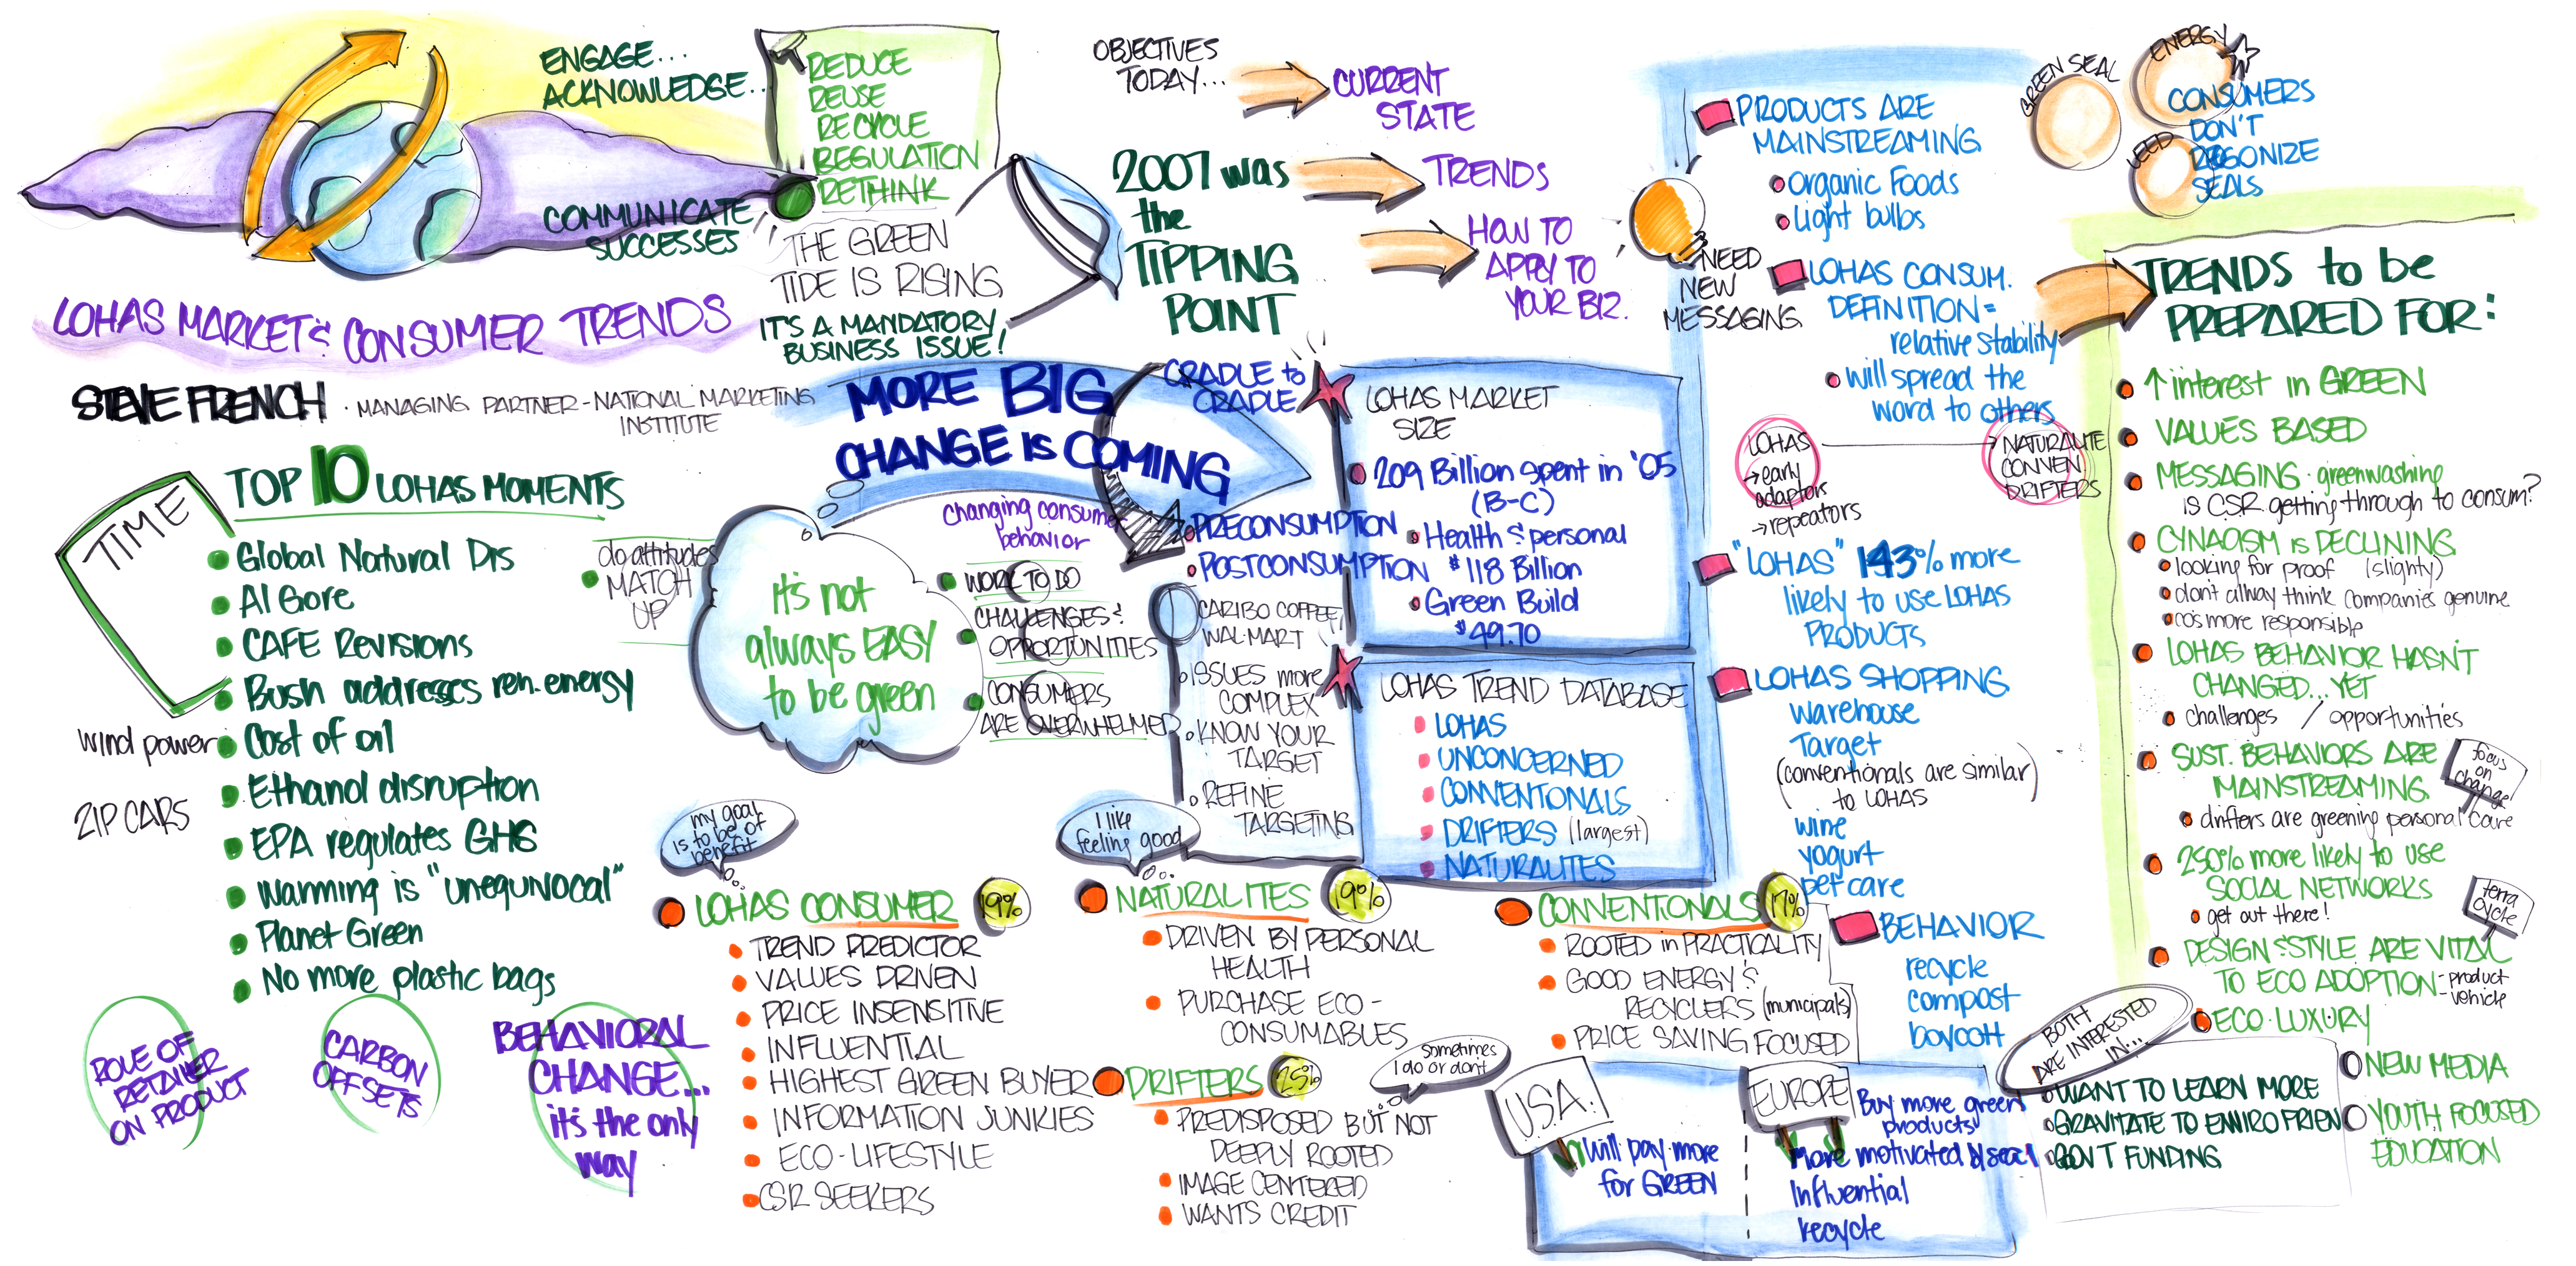 ENGAGE...
ACKNOWLEDGE...
COMMUNICATE
SUCCESSES
REDUCE
REUSE
RECYCLE
REGULATION
RETHINK
THE GREEN
TIDE IS RISING,
IT'S A MANDATORY
BUSINESS ISSUE!
LOHAS MARKET & CONSUMER TRENDS
STEVE FRENCH · MANAGING PARTNER - NATIONAL MARKETING
INSTITUTE
OBJECTIVES
TODAY...
CURRENT
STATE
TRENDS
HOW TO
APPLY TO
YOUR BIZ.
2007 was
the
TIPPING
POINT
TIME
TOP 10 LOHAS MOMENTS
Global Natural Dis
Al Gore
CAFE Revisions
Bush addresses ren. energy
Cost of oil
Ethanol disruption
EPA regulates GHG
Warming is "unequivocal"
Planet Green
No more plastic bags
wind power
ZIP CARS
ROLE OF
RETAILER
ON PRODUCT
CARBON
OFFSETS
BEHAVIORAL
CHANGE...
it's the only
way
MORE BIG
CHANGE IS COMING
do attitudes
MATCH
UP
it's not
always EASY
to be green
changing consumer
behavior
WORK TO DO
CHALLENGES &
OPPORTUNITIES
CONSUMERS
ARE OVERWHELMED
CRADLE to
CRADLE
PRECONSUMPTION
POSTCONSUMPTION
CARIBO COFFEE
WAL-MART
ISSUES more
COMPLEX
KNOW YOUR
TARGET
REFINE
TARGETING
LOHAS MARKET
SIZE
209 Billion spent in '05
(B-C)
Health & personal
$118 Billion
Green Build
$49.70
LOHAS TREND DATABASE
LOHAS
UNCONCERNED
CONVENTONALS
DRIFTERS (largest)
NATURALITES
my goal
is to be of
benefit
LOHAS CONSUMER 19%
TREND PREDICTOR
VALUES DRIVEN
PRICE INSENSITIVE
INFLUENTIAL
HIGHEST GREEN BUYER
INFORMATION JUNKIES
ECO-LIFESTYLE
CSR SEEKERS
I like
feeling good
NATURALITES 19%
DRIVEN BY PERSONAL
HEALTH
PURCHASE ECO-
CONSUMABLES
DRIFTERS 25%
sometimes
I do or don't
PREDISPOSED BUT NOT
DEEPLY ROOTED
IMAGE CENTERED
WANTS CREDIT
CONVENTIONALS 17%
ROOTED in PRACTICALITY
GOOD ENERGY &
RECYCLERS (municipals)
PRICE SAVING FOCUSED
U.S.A.
Will pay more
for GREEN
EUROPE
Buy more green
products
More motivated by seal
Influential
recycle
NEED
NEW
MESSAGING
PRODUCTS ARE
MAINSTREAMING
Organic Foods
Light bulbs
LOHAS CONSUM.
DEFINITION =
relative stability
will spread the
word to others
LOHAS
→ early
adaptors
→ repeators
NATURALITE
CONVEN
DRIFTERS
"LOHAS" 143% more
likely to use LOHAS
PRODUCTS
LOHAS SHOPPING
Warehouse
Target
(conventionals are similar)
to LOHAS
wine
yogurt
pet care
BEHAVIOR
recycle
compost
boycott
GREEN SEAL
ENERGY
LEED
CONSUMERS
DON'T
REGONIZE
SEALS
TRENDS to be
PREPARED FOR:
↑ interest in GREEN
VALUES BASED
MESSAGING · greenwashing
is CSR getting through to consum?
CYNACISM IS DECLINING
looking for proof (slighty)
don't allway think companies genuine
co's more responsible
LOHAS BEHAVIOR HASN'T
CHANGED...YET
challenges / opportunities
SUST. BEHAVIORS ARE
MAINSTREAMING
focus
on
change
drifters are greening personal care
250% more likely to use
SOCIAL NETWORKS
get out there!
terra
cycle
DESIGN & STYLE ARE VITAL
TO ECO ADOPTION - product
- vehicle
ECO-LUXURY
NEW MEDIA
YOUTH FOCUSED
EDUCATION
BOTH
ARE INTERESTED
IN...
WANT TO LEARN MORE
GRAVITATE TO ENVIRO FRIEN
GOV'T FUNDING